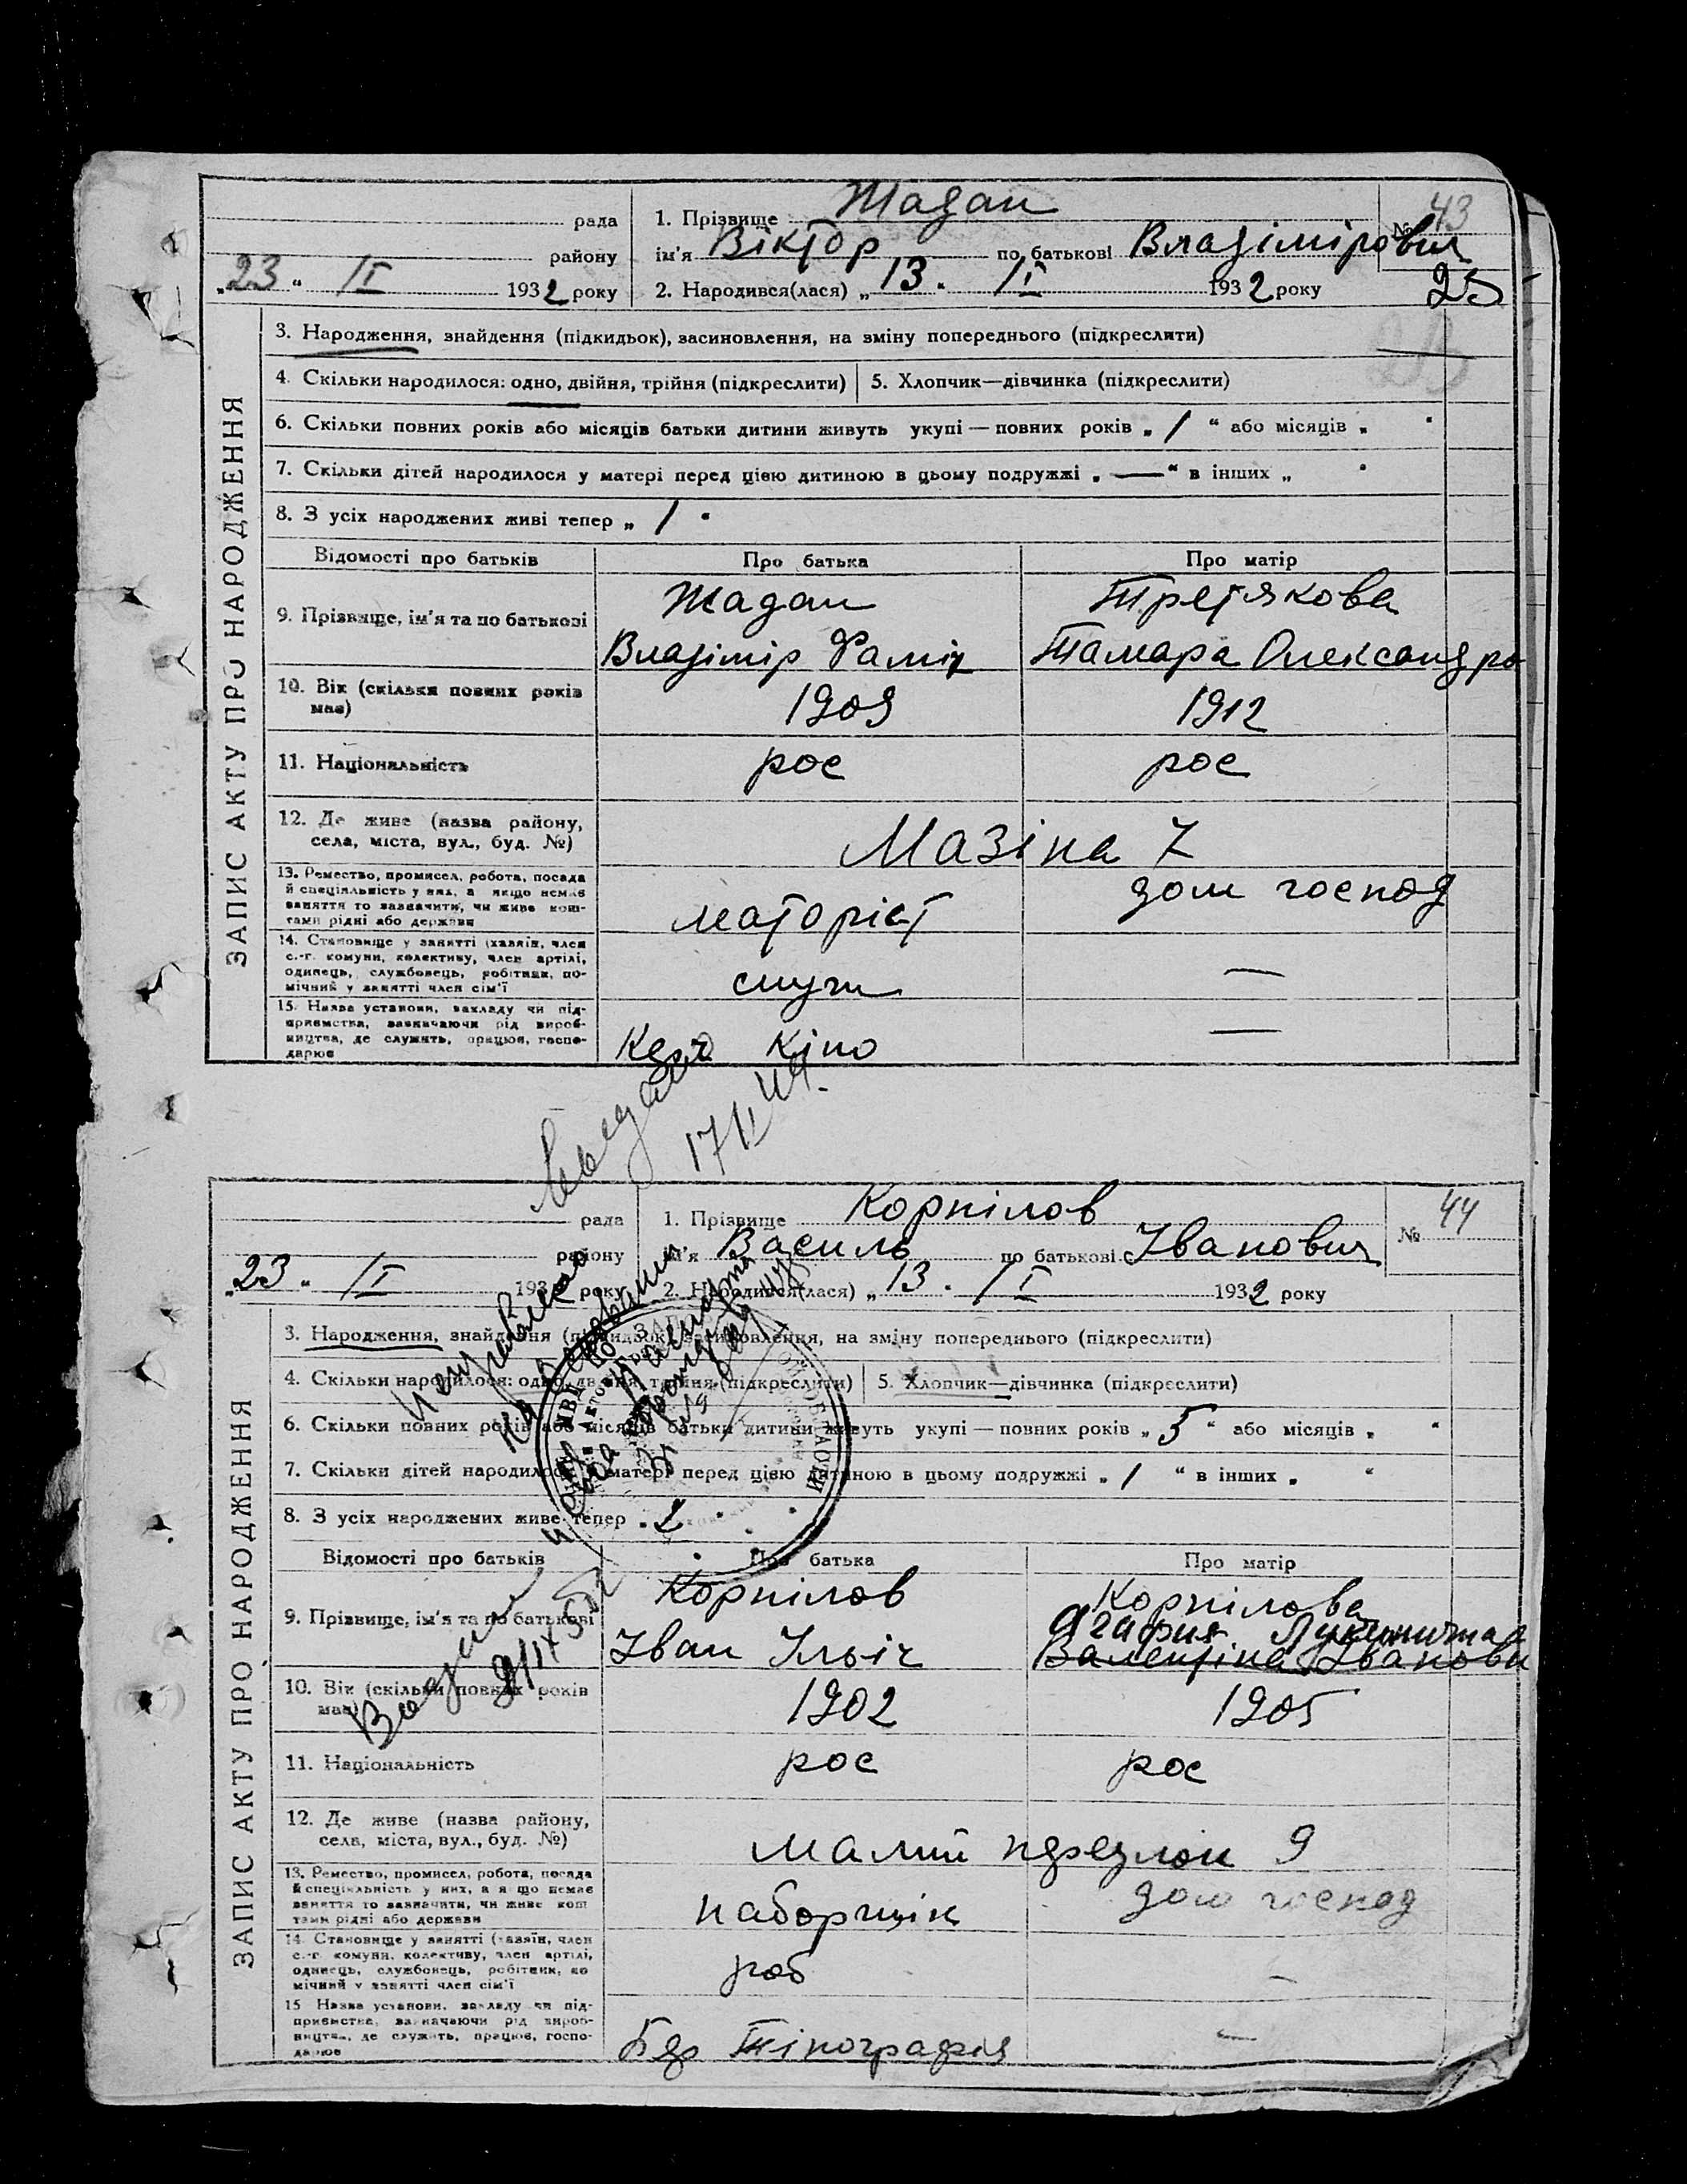 рада
району
„23“ /I 1932 року
1. Прізвище Жадан
№ 43
ім'я Віктор по батькові Владімірович
2. Народився(лася) „13“ /I 1932 року
25
ЗАПИС АКТУ ПРО НАРОДЖЕННЯ
3. Народження, знайдення (підкидьок), засиновлення, на зміну попереднього (підкреслити)
4. Скільки народилося: одно, двійня, трійня (підкреслити) 5. Хлопчик—дівчинка (підкреслити)
6. Скільки повних років або місяців батьки дитини живуть укупі — повних років „ / “ або місяців „ “
7. Скільки дітей народилося у матері перед цією дитиною в цьому подружжі „ — “ в інших „ “
8. З усіх народжених живі тепер „ / “
Відомості про батьків Про батька Про матір
9. Прізвище, ім'я та по батькові
Жадан Третякова
Владімір Фаміч Тамара Олександро
10. Вік (скільки повних років має) 1909 1912
11. Національність рос рос
12. Де живе (назва району, села, міста, вул., буд. №)
Мазіна 7
13. Ремество, промисел, робота, посада й спеціяльність у них, а якщо немає заняття то зазначити, чи живе коштами рідні або держави
маторіст дом господ
14. Становище у занятті (хазяїн, член с.-г. комуни, колективу, член артілі, одинець, службовець, робітник, помічний у занятті член сім'ї
служ —
15. Назва установи, закладу чи підприємства, зазначаючи рід виробництва, де служить, працює, господарює
Кіно —
17/II 49.
рада
району
„23“ /I 1932 року
1. Прізвище Корнілов
№ 44
ім'я Василь по батькові Іванович
2. Народився(лася) „13“ /I 1932 року
ЗАПИС АКТУ ПРО НАРОДЖЕННЯ
3. Народження, знайдення (підкидьок), засиновлення, на зміну попереднього (підкреслити)
4. Скільки народилося: одно, двійня, трійня (підкреслити) 5. Хлопчик—дівчинка (підкреслити)
6. Скільки повних років або місяців батьки дитини живуть укупі — повних років „ 5 “ або місяців „ “
7. Скільки дітей народилося у матері перед цією дитиною в цьому подружжі „ / “ в інших „ “
8. З усіх народжених живе тепер „ 2 “
Исправлено
на основании
паспорта
Відомості про батьків Про батька Про матір
9. Прізвище, ім'я та по батькові
Корнілов Корнілова
Агафия Лукинична
Іван Ільіч Валентіна Іванови
10. Вік (скільки повних років має) 1902 1905
11. Національність рос рос
12. Де живе (назва району, села, міста, вул., буд. №)
Малий 9
13. Ремество, промисел, робота, посада й спеціяльність у них, а якщо немає заняття то зазначити, чи живе коштами рідні або держави
наборщік дом господ
14. Становище у занятті (хазяїн, член с.-г. комуни, колективу, член артілі, одинець, службовець, робітник, помічний у занятті член сім'ї
роб —
15. Назва установи, закладу чи підприємства, зазначаючи рід виробництва, де служить, працює, господарює
Тіпографія —